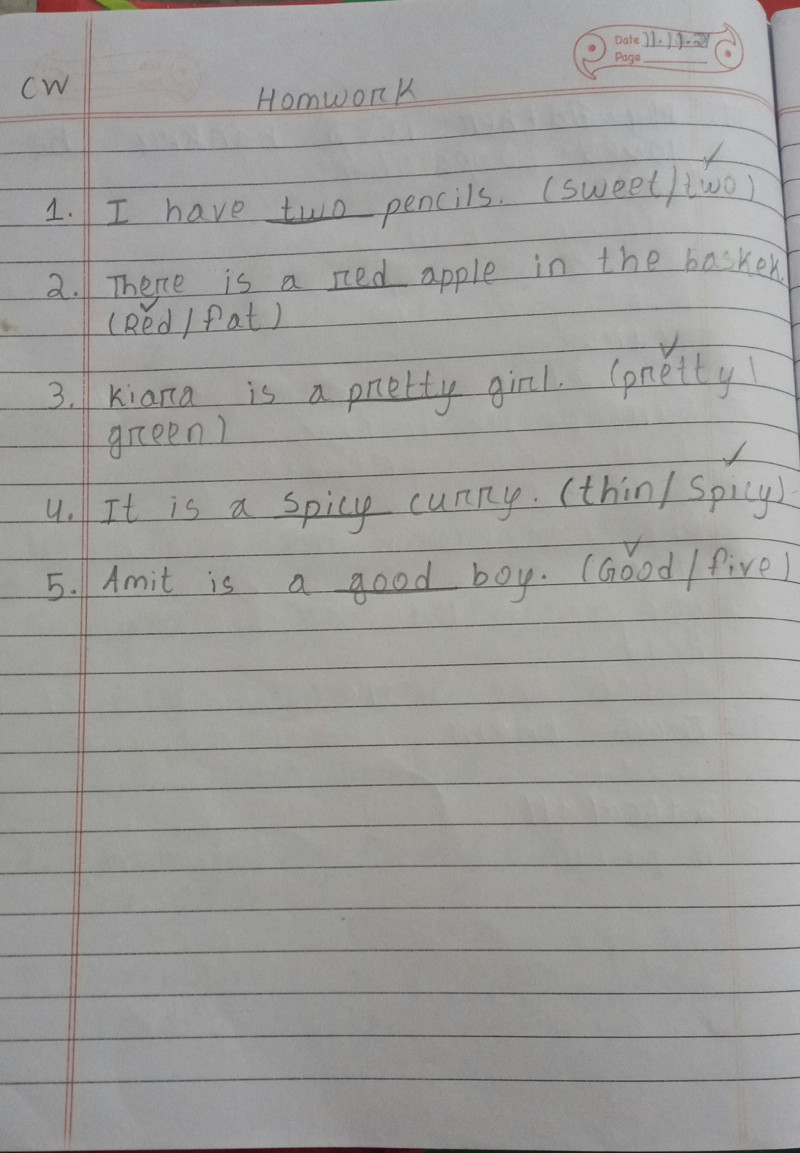 Date 11.11.21
Page
CW
Homwork
1. I have two pencils. (sweet/two)
2. There is a red apple in the basket.
(Red/fat)
3. Kiara is a pretty girl. (pretty/
green)
4. It is a spicy curry. (thin/spicy)
5. Amit is a good boy. (Good/five)